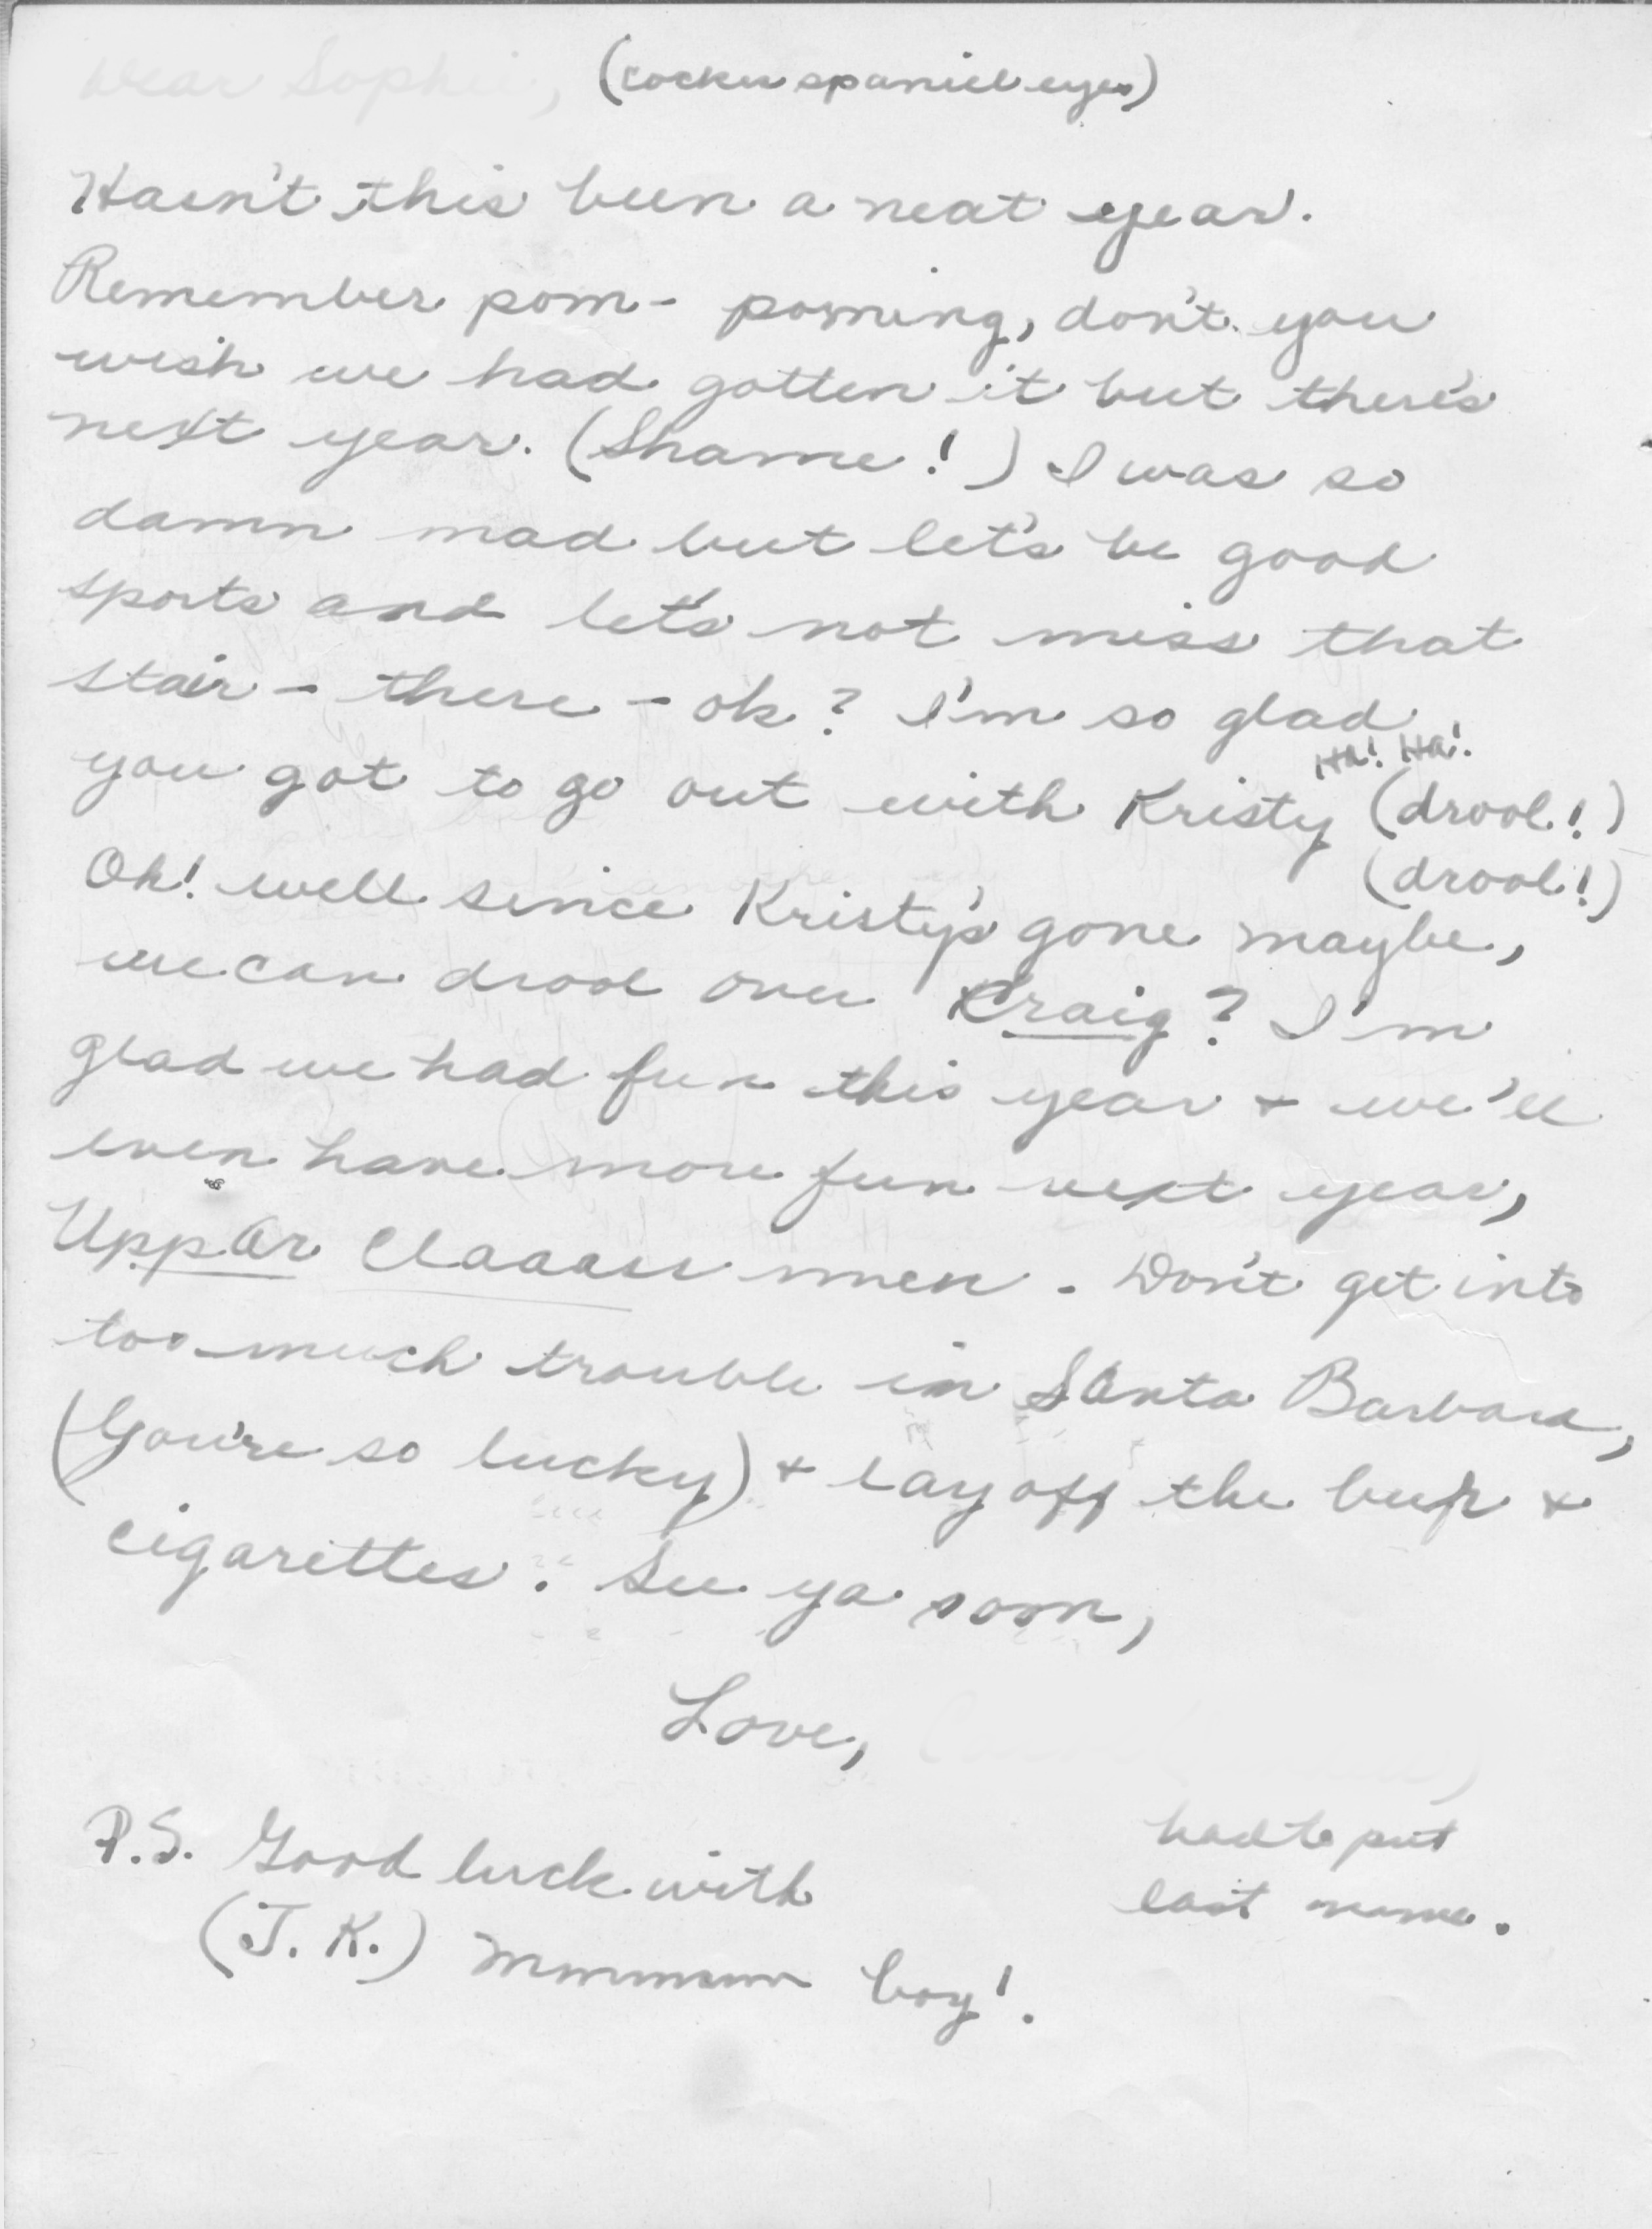 Dear Sophie, (cocker spaniel eyes)
Hasn't this been a neat year.
Remember pom-poming, don't you
wish we had gotten it but there's
next year. (Shame!) I was so
damn mad but let's be good
sports and let's not miss that
stair - there - ok? I'm so glad
Ha! Ha!
you got to go out with Kristy (drool!)
(drool!)
Oh! well since Kristy's gone maybe,
we can drool over Craig? I'm
glad we had fun this year + we'll
even have more fun next year,
Uppar Claaass men. Don't get into
too much trouble in Santa Barbara,
(You're so lucky) + lay off the +
cigarettes. See ya soon,
Love,
had to put
last name.
P.S. Good luck with
(J.K.) mmmmmm boy!